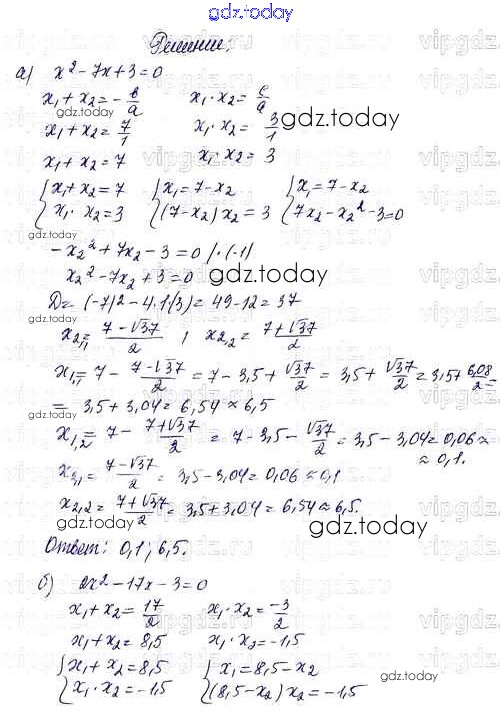 gdz.today
Решение:
а) x² - 7x + 3 = 0
x₁ + x₂ = - в/а    x₁ · x₂ = с/а
gdz.today
x₁ + x₂ = 7/1    x₁ · x₂ = 3/1
gdz.today
x₁ + x₂ = 7    x₁ · x₂ = 3
{ x₁ + x₂ = 7    { x₁ = 7 - x₂    { x = 7 - x₂
{ x₁ · x₂ = 3    { (7 - x₂) x₂ = 3    { 7x₂ - x₂² - 3 = 0
gdz.today
- x₂² + 7x₂ - 3 = 0 | · (-1)
x₂² - 7x₂ + 3 = 0
gdz.today
D = (-7)² - 4 · 1 (3) = 49 - 12 = 37
gdz.today
x₂,₁ = (7 - √37)/2 ; x₂,₂ = (7 + √37)/2
x₁,₁ = 7 - (7 - √37)/2 = 7 - 3,5 + √37/2 = 3,5 + √37/2 = 3,5 + 6,08/2 =
= 3,5 + 3,04 = 6,54 ≈ 6,5
gdz.today
x₁,₂ = 7 - (7 + √37)/2 = 7 - 3,5 - √37/2 = 3,5 - 3,04 = 0,06 ≈
≈ 0,1.
x₂,₁ = (7 - √37)/2 = 3,5 - 3,04 = 0,06 ≈ 0,1
x₂,₂ = (7 + √37)/2 = 3,5 + 3,04 = 6,54 ≈ 6,5.
gdz.today
gdz.today
Ответ: 0,1; 6,5.
б) 2x² - 17x - 3 = 0
x₁ + x₂ = 17/2    x₁ · x₂ = -3/2
x₁ + x₂ = 8,5    x₁ · x₂ = -1,5
{ x₁ + x₂ = 8,5    { x₁ = 8,5 - x₂
gdz.today
{ x₁ · x₂ = -1,5    { (8,5 - x₂) x₂ = -1,5